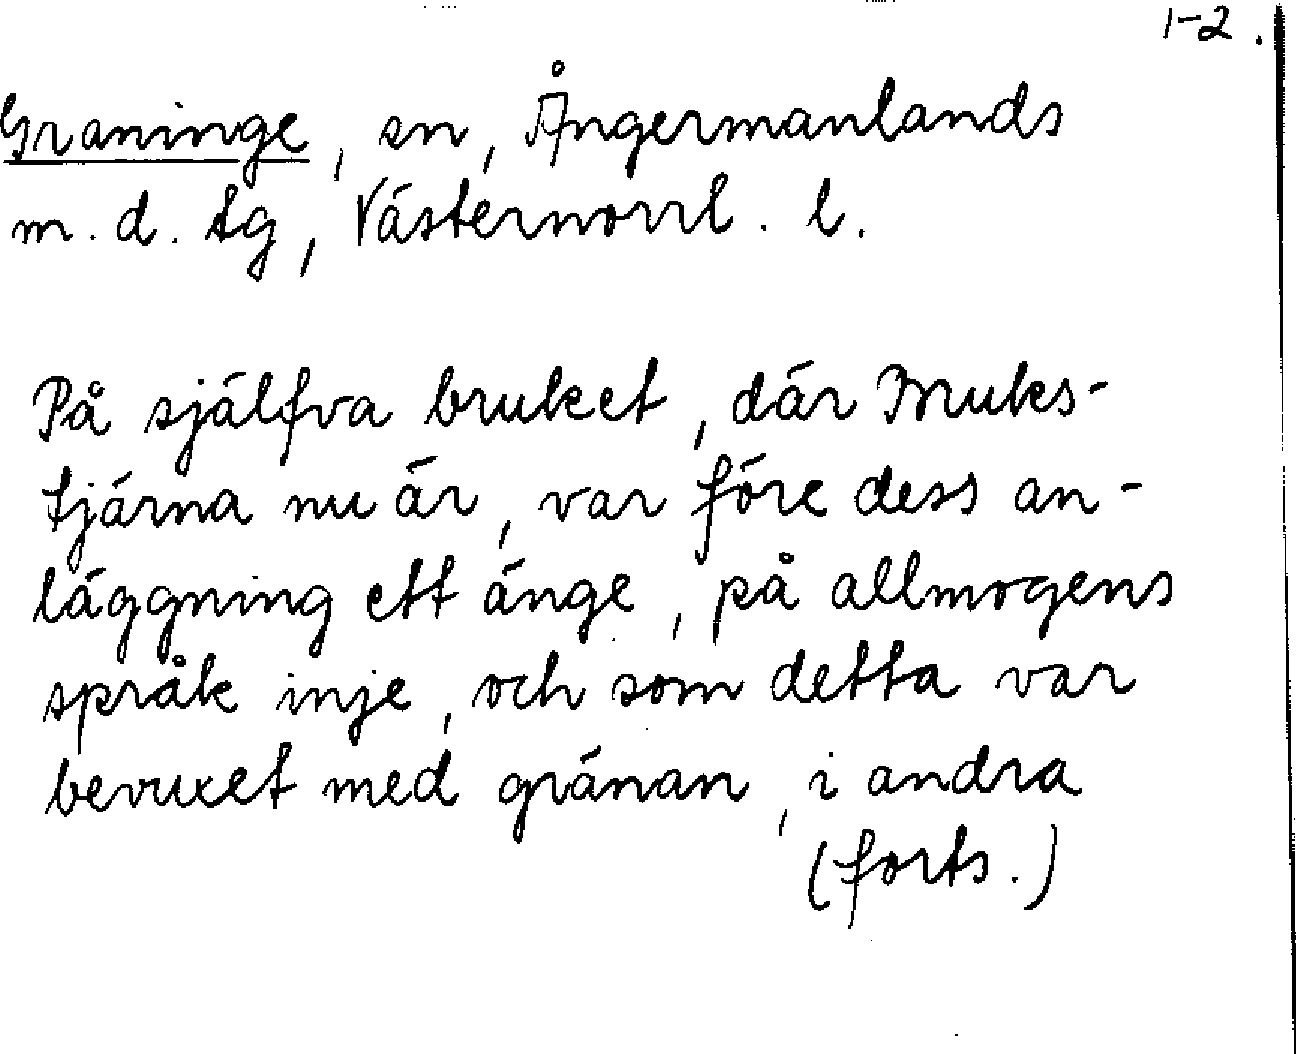 1-2.
Graninge, sn, Ångermanlands
m. d. tg, Västernorrl. l.
På själfva bruket, där Bruks-
tjärna nu är, var före dess an-
läggning ett änge, på allmogens
språk inje, och som detta var
bevuxet med gränan, i andra
(forts.)